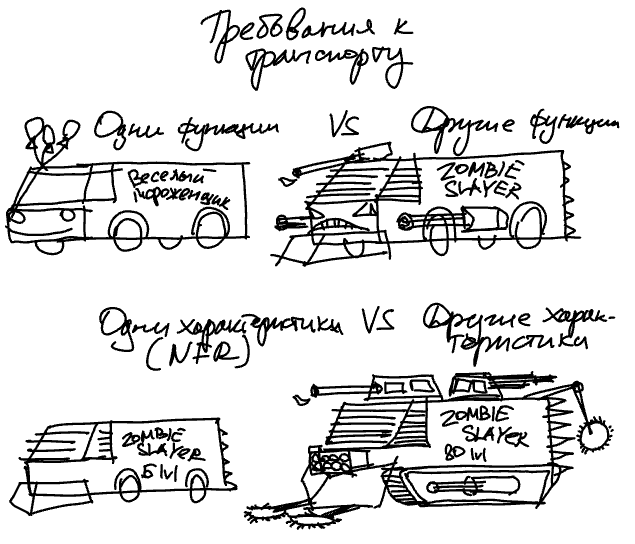 Требования к
транспорту
Одни функции VS Другие функции
Веселый
мороженщик
ZOMBIE
SLAYER
Одни характеристики VS Другие харак-
(NFR) теристики
ZOMBIE
SLAYER
5 lvl
ZOMBIE
SLAYER
80 lvl